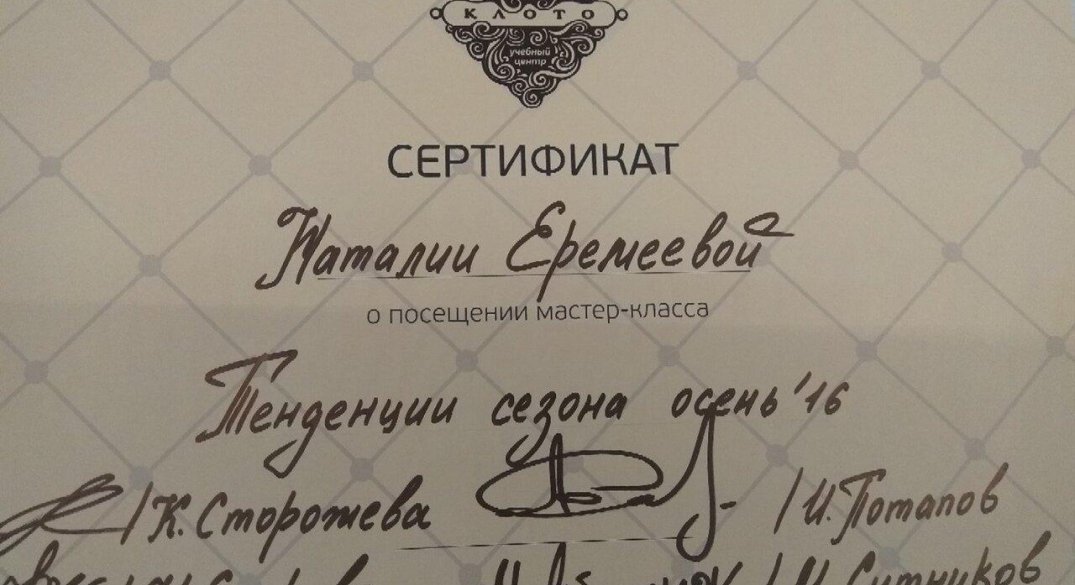 КЛОТО
учебный
центр
СЕРТИФИКАТ
Наталии Еремеевой
о посещении мастер-класса
Тенденции сезона осень '16
/К. Сторожева /И. Потапов
Ситников